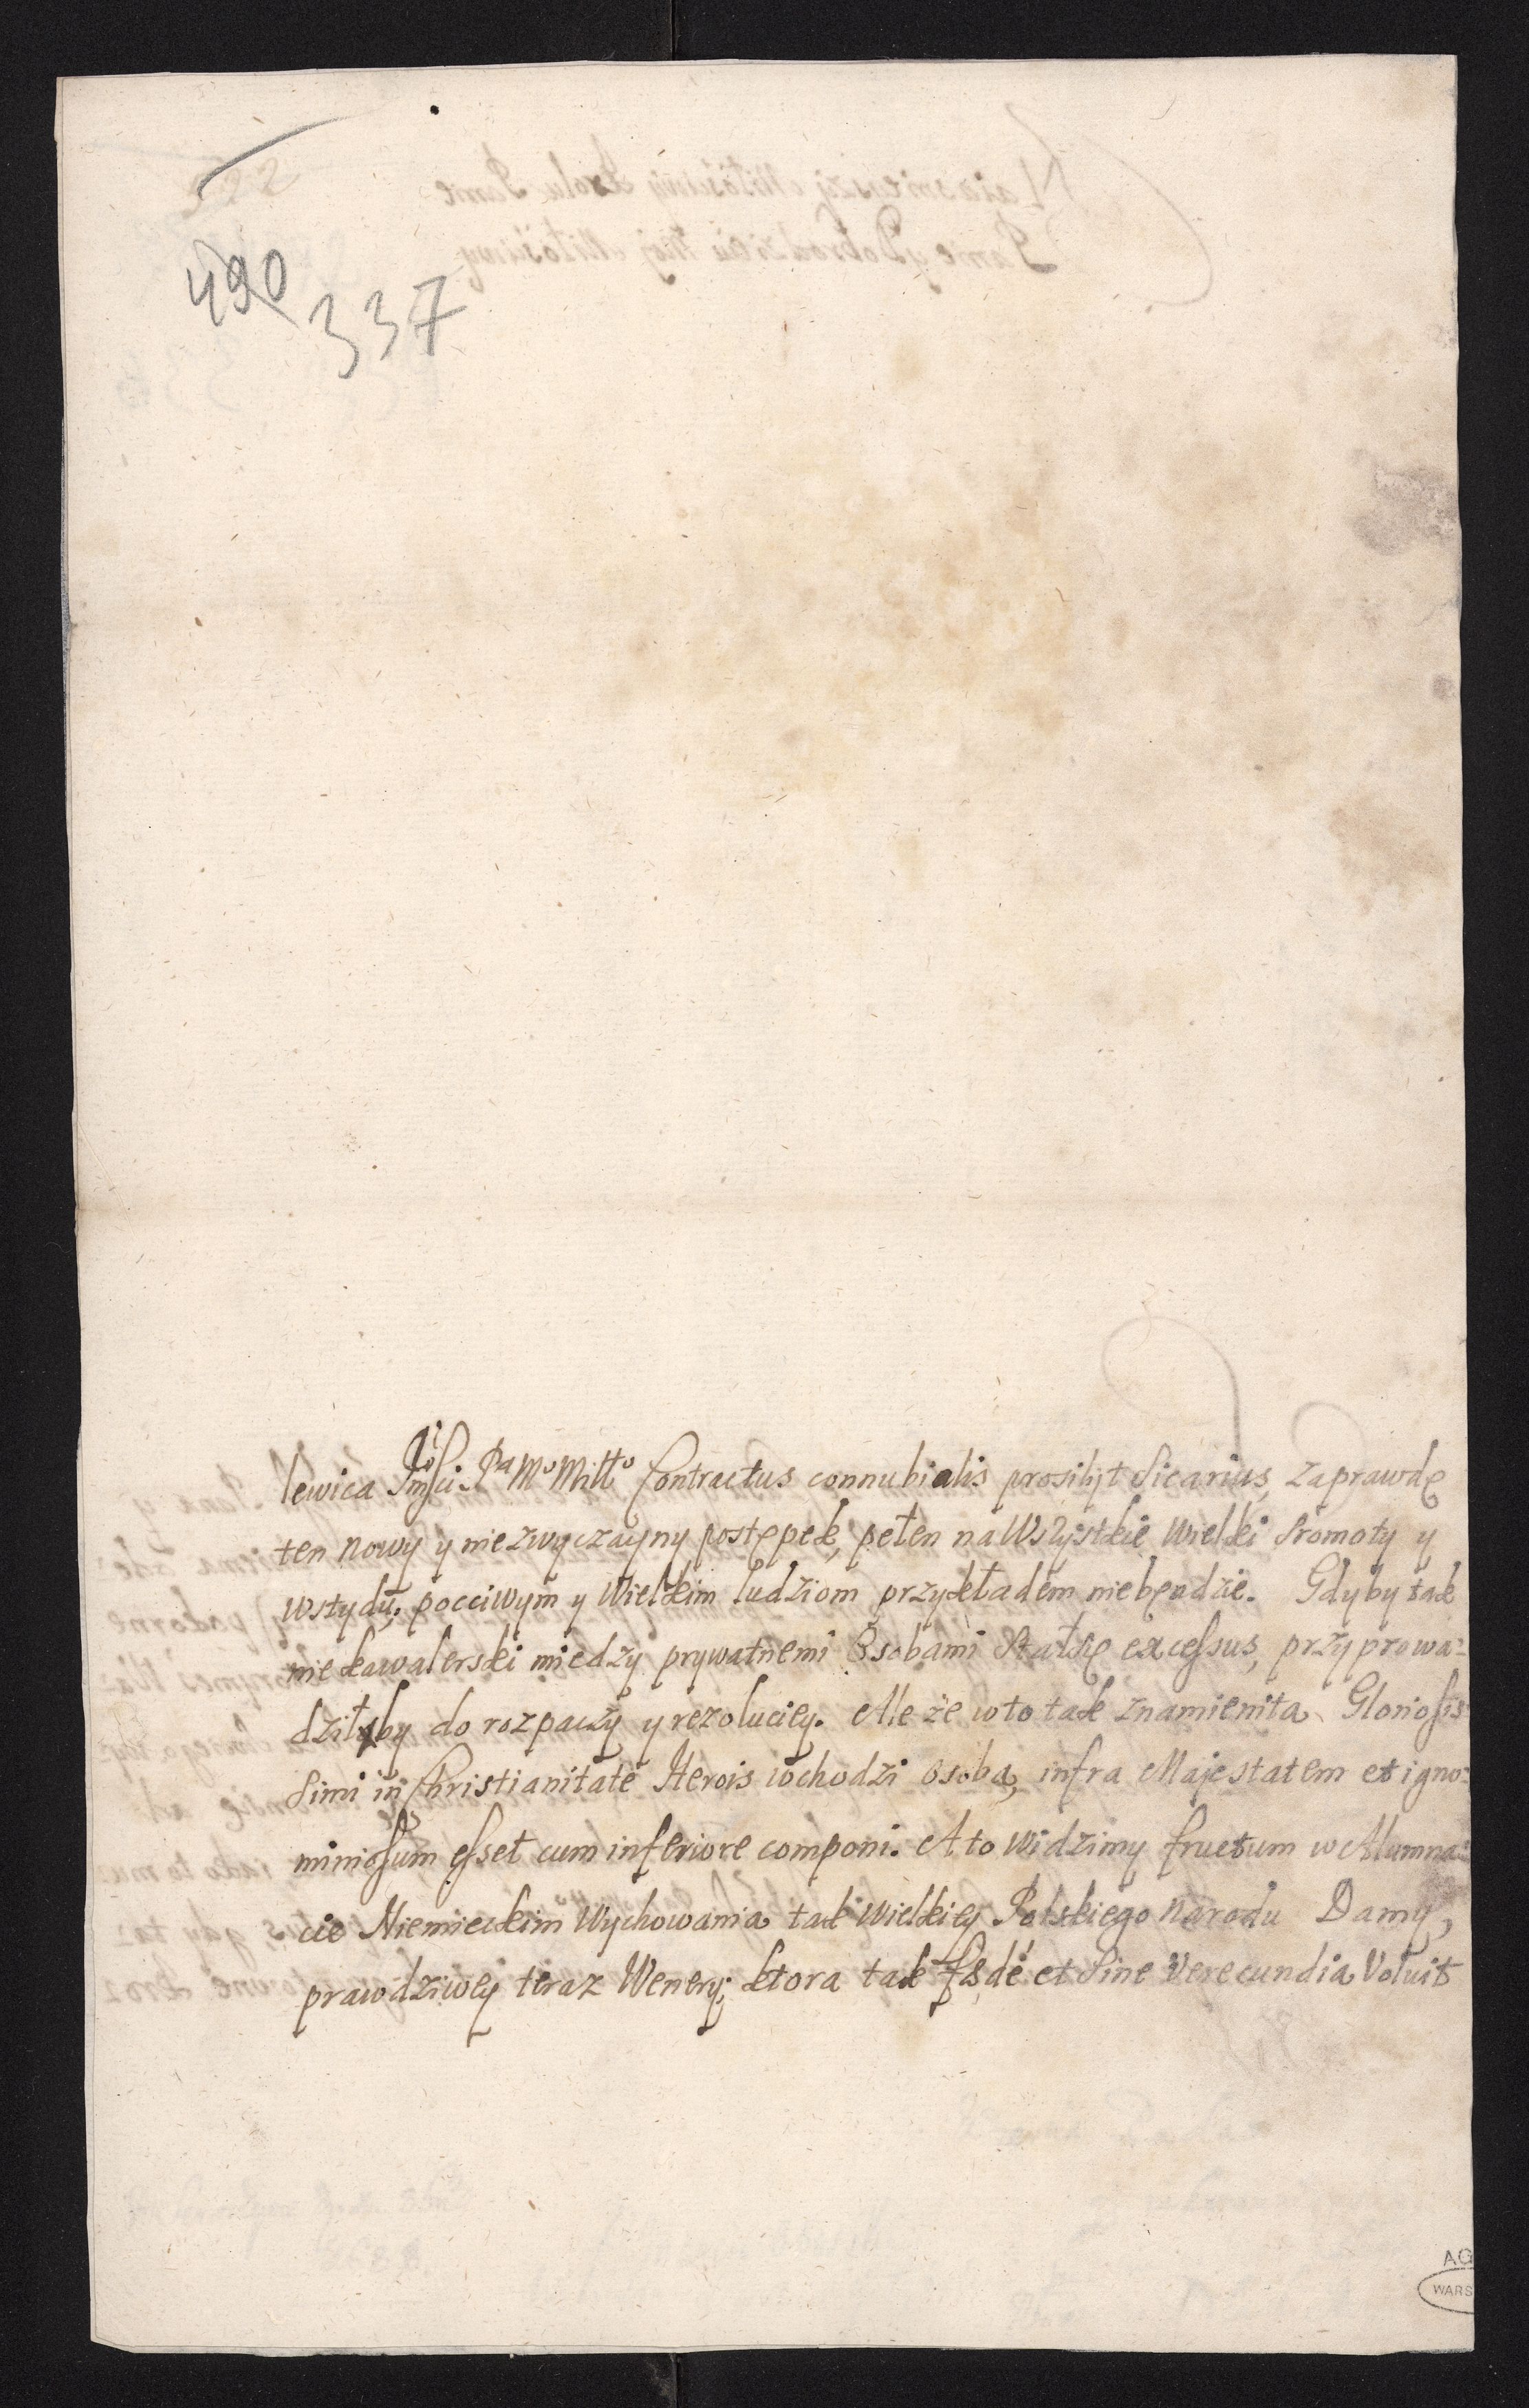 490
337
lewica Jmsci Pa Mo Miłło Contractus connubialis prosilÿt Sicarius, zaprawdę
ten nowy y niezwyczayny postępek, pełen na Wszystkie wielki sromoty y
wstydu, pocciwym y Wielkim ludziom przykładem niebęndzie. Gdyby tak
niekawalerski miedzy prywatnemi Osobami Stałsię excessus, przyprowa:
dziłby do rozpaczy y rezoluciey. Ale że wto tak znamienita Gloriosis
simi in Christianitate Herois wchodzi osoba, infra Majestatem et igno:
miniosum esset cum inferiore componi. Ato widzimy fructum w Alumna:
cie Niemieckim Wychowania tak wielkiey Polskiego narodu Damy,
prawdziwey teraz Wenery, ktora tak et Sine Verecundia Voluit
AG
WARS